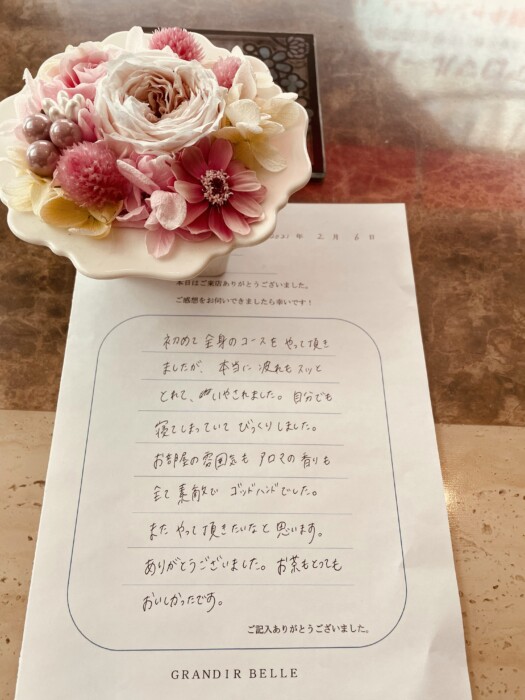 2021 年 2 月 6 日
本日はご来店ありがとうございました。
ご感想をお伺いできましたら幸いです！
初めて全身のコースをやって頂き
ましたが、本当に疲れもスッと
とれて、いやされました。自分でも
寝てしまっていてびっくりしました。
お部屋の雰囲気もアロマの香りも
全て素敵でゴッドハンドでした。
またやって頂きたいなと思います。
ありがとうございました。お茶もとっても
おいしかったです。
ご記入ありがとうございました。
GRANDIR BELLE